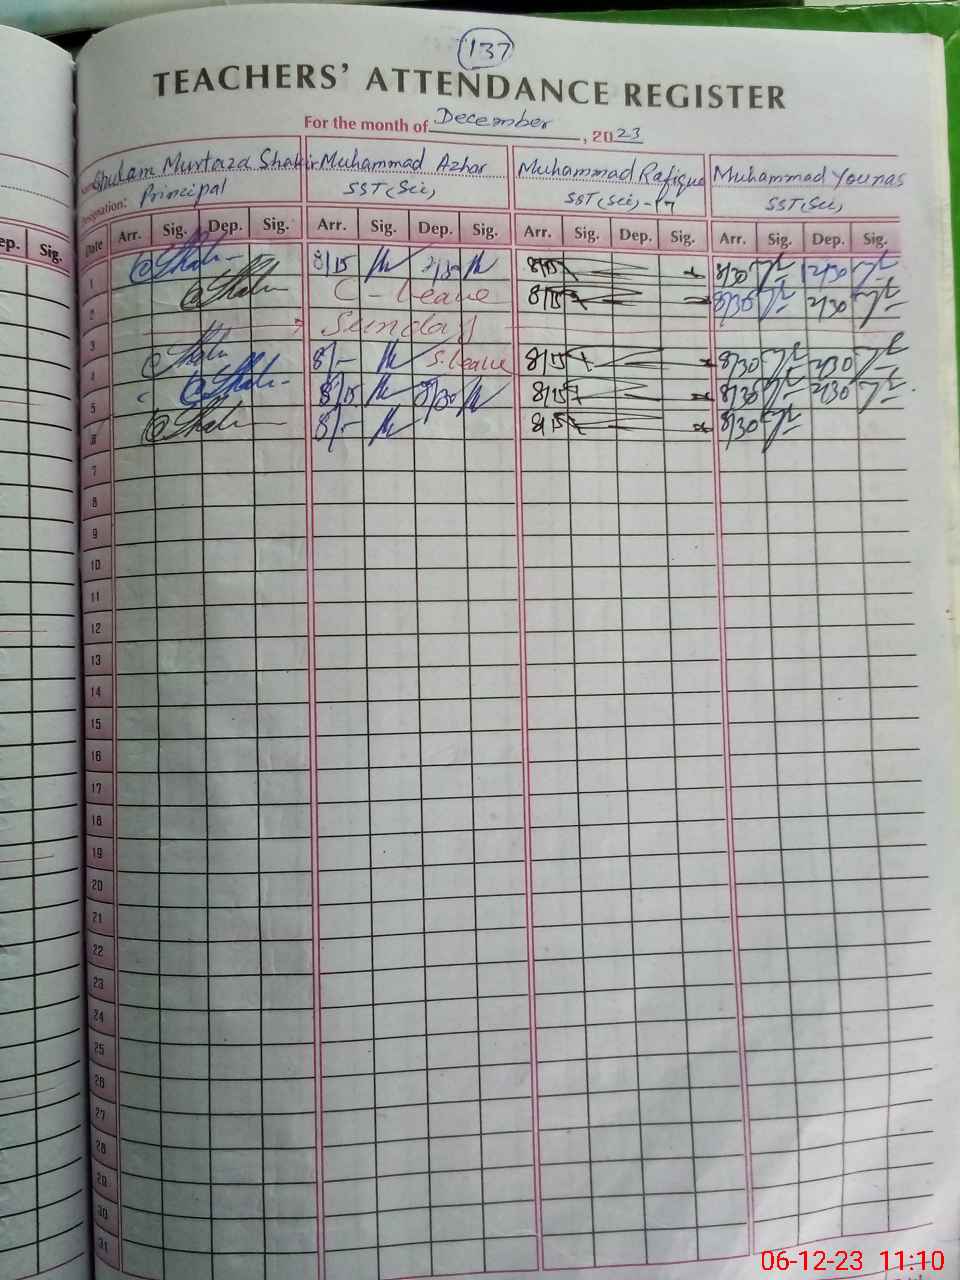 137
TEACHERS' ATTENDANCE REGISTER
For the month of December, 2023
Ghulam Murtaza Shakir Muhammad Azhar Muhammad Rafique Muhammad Younas
Designation: Principal SST(Sci) SST(Sci)-17 SST(Sci)
ep. Sig. Date Arr. Sig. Dep. Sig. Arr. Sig. Dep. Sig. Arr. Sig. Dep. Sig. Arr. Sig. Dep. Sig.
1 8/15 2/30 8/15 8/30 12/30
2 C-Leave 8/15 8/30 2/30
3 Sunday
4 8/- S.Leave 8/15 8/30 2/30
5 8/15 8/15 8/30 2/30
6 8/- 8/15 8/30
7
8
9
10
11
12
13
14
15
16
17
18
19
20
21
22
23
24
25
26
27
28
29
30
31
06-12-23 11:10